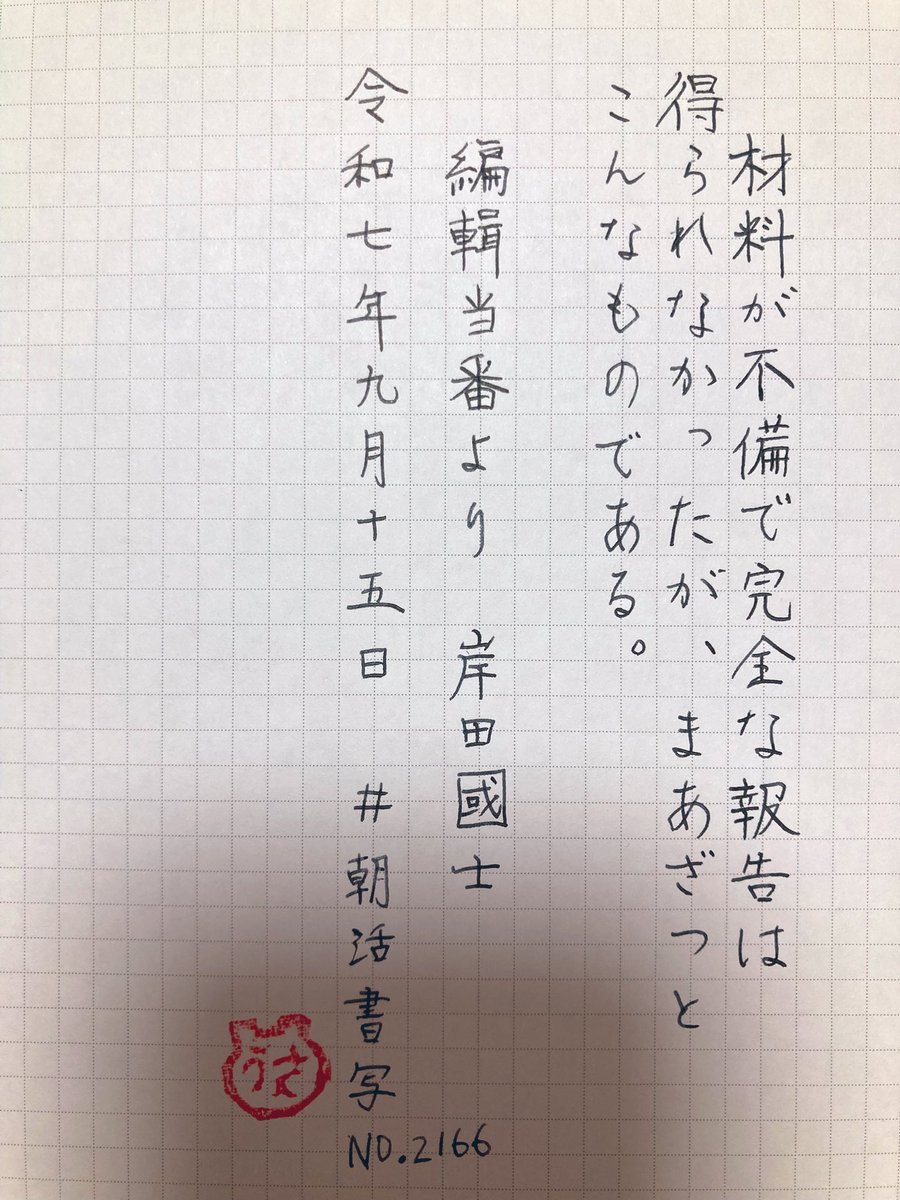 材料が不備で完全な報告は
得られなかったが、まあざつと
こんなものである。
編輯当番より 岸田國士
令和七年九月十五日 #朝活書写
NO.2166